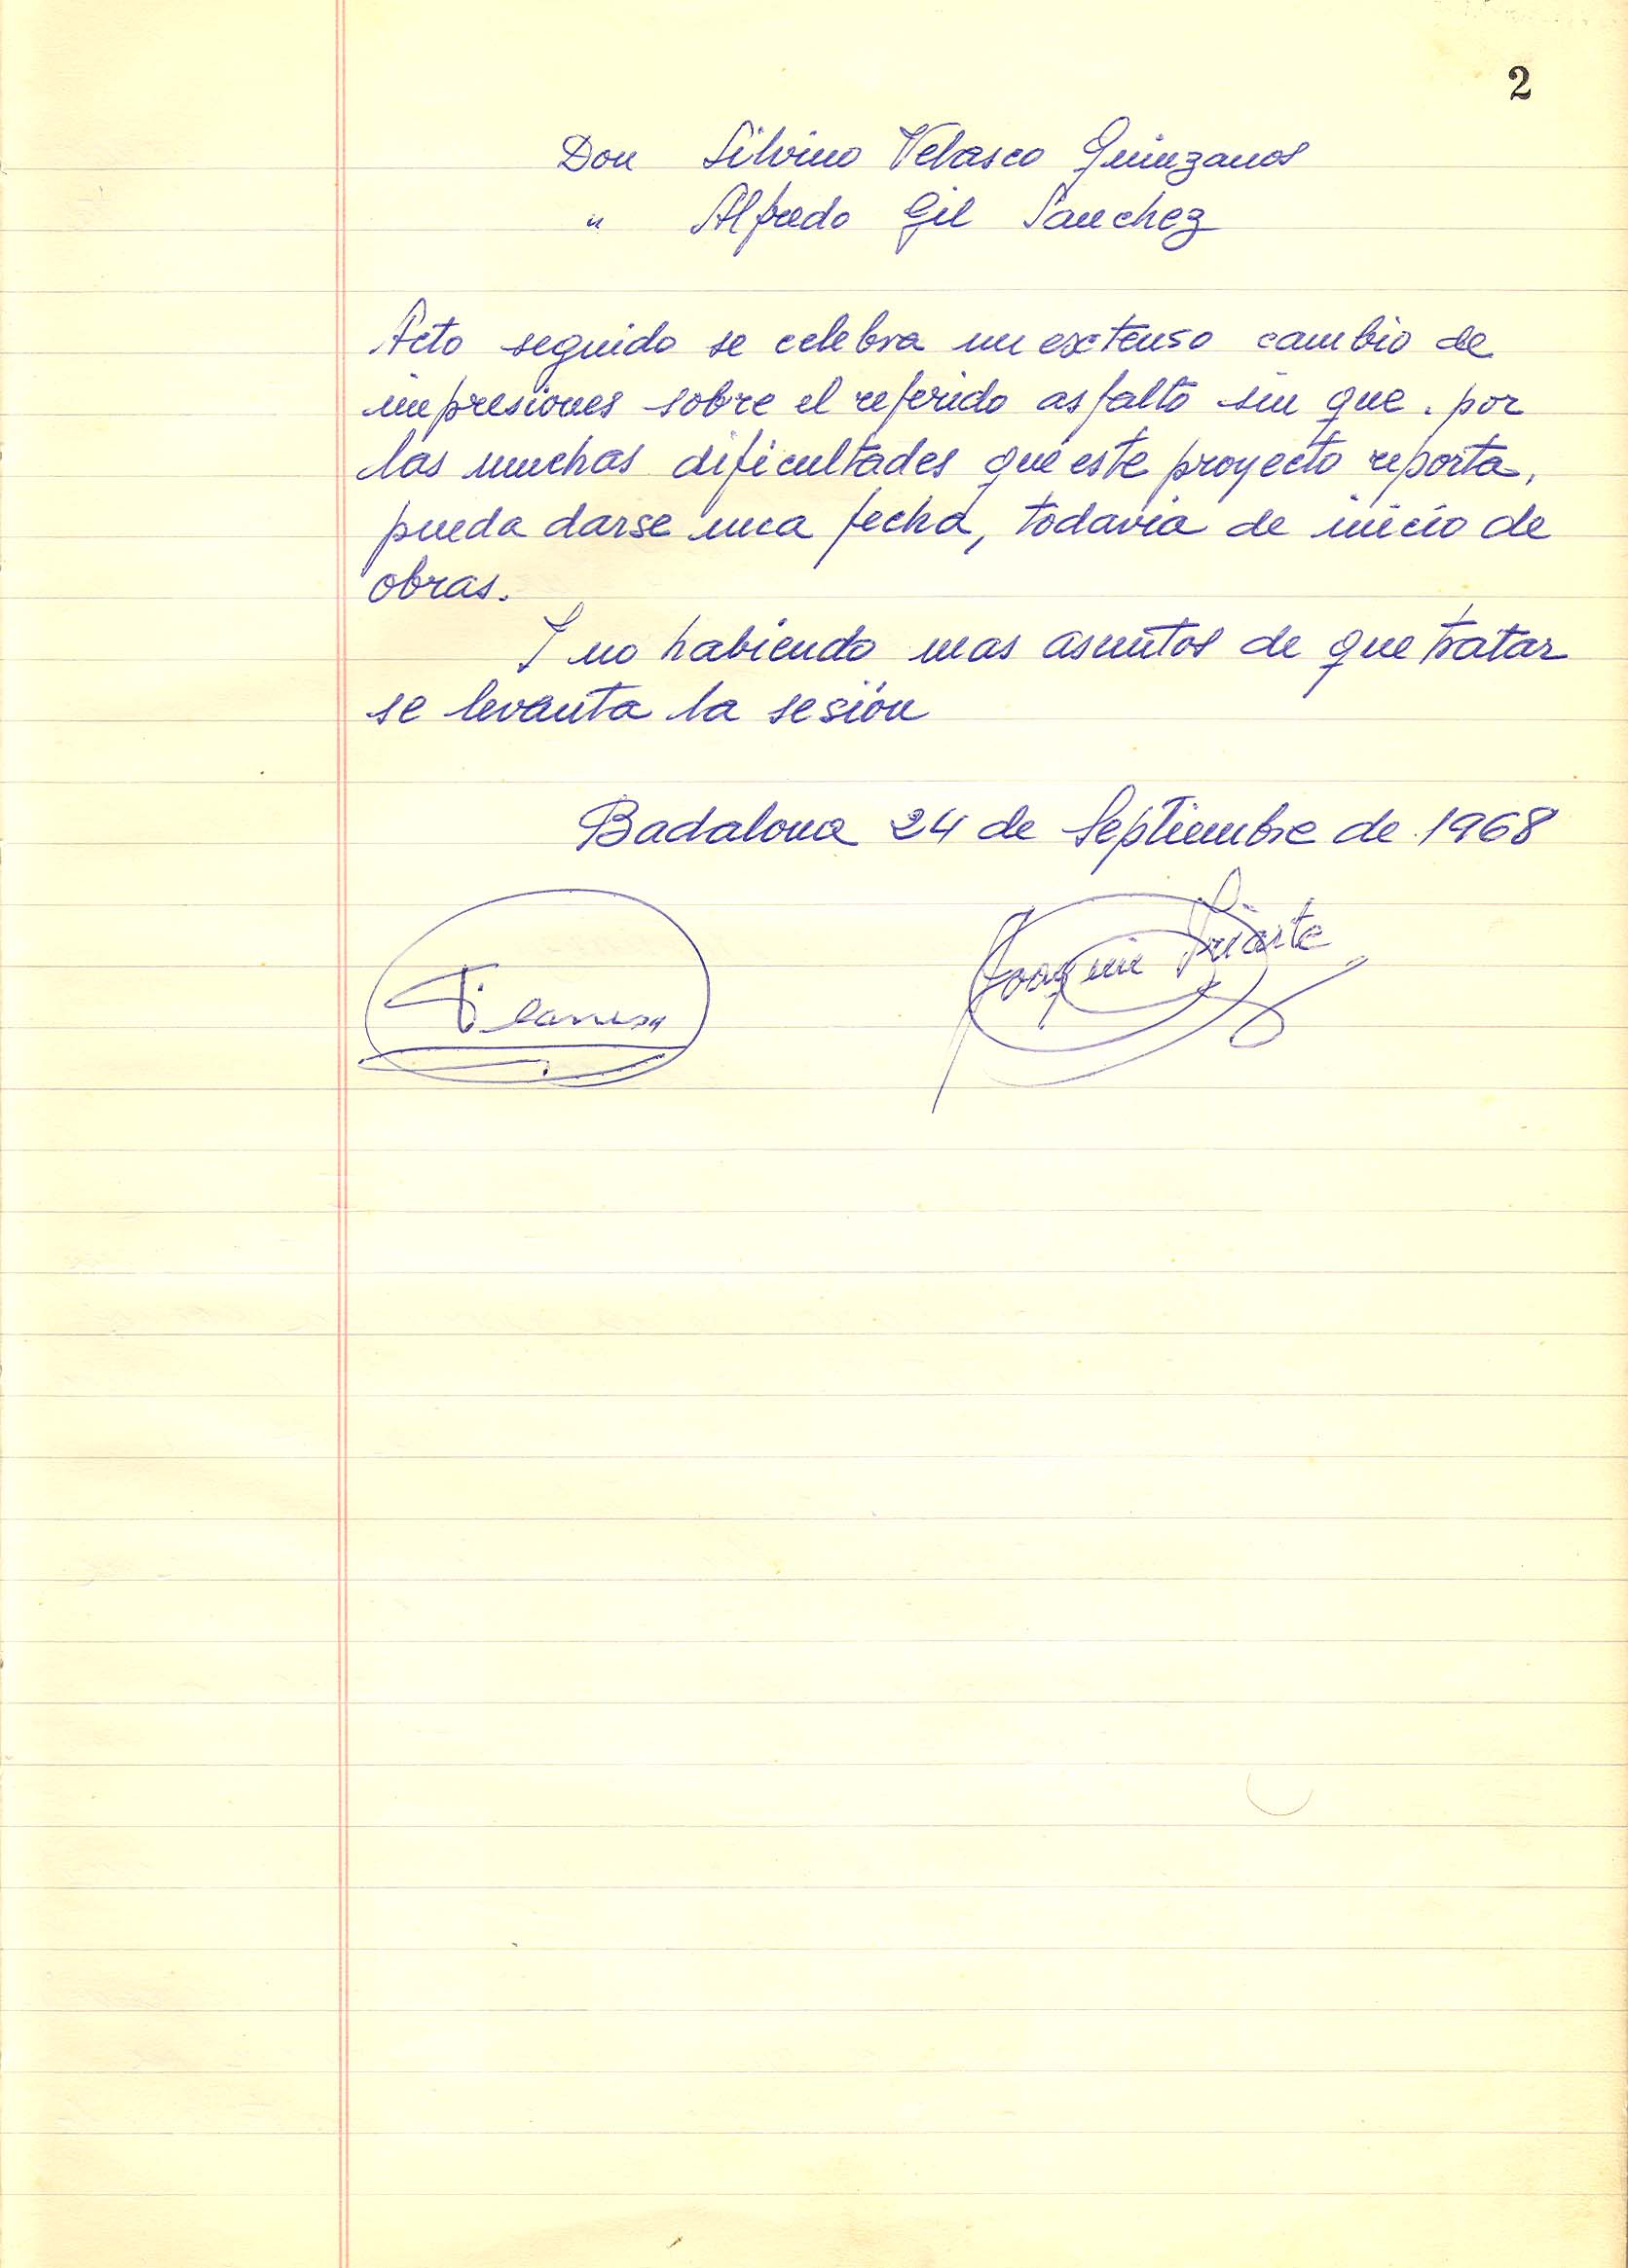 2
Don Silvino Velasco Quinzanos
" Alfredo Gil Sanchez
Acto seguido se celebra un extenso cambio de
impresiones sobre el referido asfalto sin que. por
las muchas dificultades que este proyecto reporta,
pueda darse una fecha, todavia de inicio de
obras.
Y no habiendo mas asuntos de que tratar
se levanta la sesión
Badalona 24 de Septiembre de 1968
Joaquin Iriarte